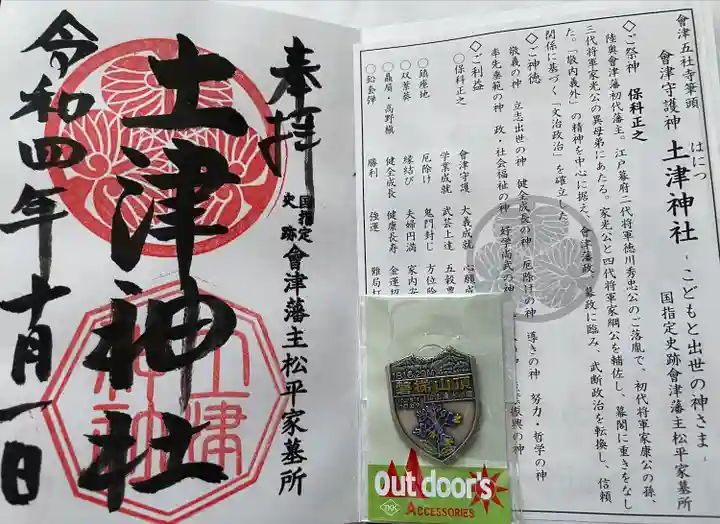 奉拝
国指定
史跡
會津藩主松平家墓所
土津神社
令和四年十月一日
會津五社寺筆頭
會津守護神
はにつ
土津神社
-こどもと出世の神さま-
国指定史跡會津藩主松平家墓所
◇ご祭神 保科正之
陸奥會津藩初代藩主。江戸幕府二代将軍徳川秀忠公のご落胤で、初代将軍家康公の孫、
三代将軍家光公の異母弟にあたる。家光公と四代将軍家綱公を輔佐し、幕閣に重きをなし
た。「敬内義外」の精神を中心に据え、會津藩政、幕政に臨み、武断政治を転換し、信頼
関係に基づく「文治政治」を確立した。
◇ご神徳
敬義の神 立志出世の神 健全成長の神 厄除けの神 導きの神 努力・哲学の神
率先垂範の神 政・社会福祉の神 好学尚武の神
振興の神
◇ご利益
○保科正之 會津守護 大義成就 心願成
学業成就 武芸上達 五穀豊
○鎮座地 厄除け 鬼門封じ 方位除
○双葉葵 縁結び 夫婦円満 家内安
○贔屓・高野槇 健全成長 健康長寿 金運招
○鉛玉弾 勝利 強運 難局打
1816.29M
磐梯山頂
Outdoor's
ACCESSORIES